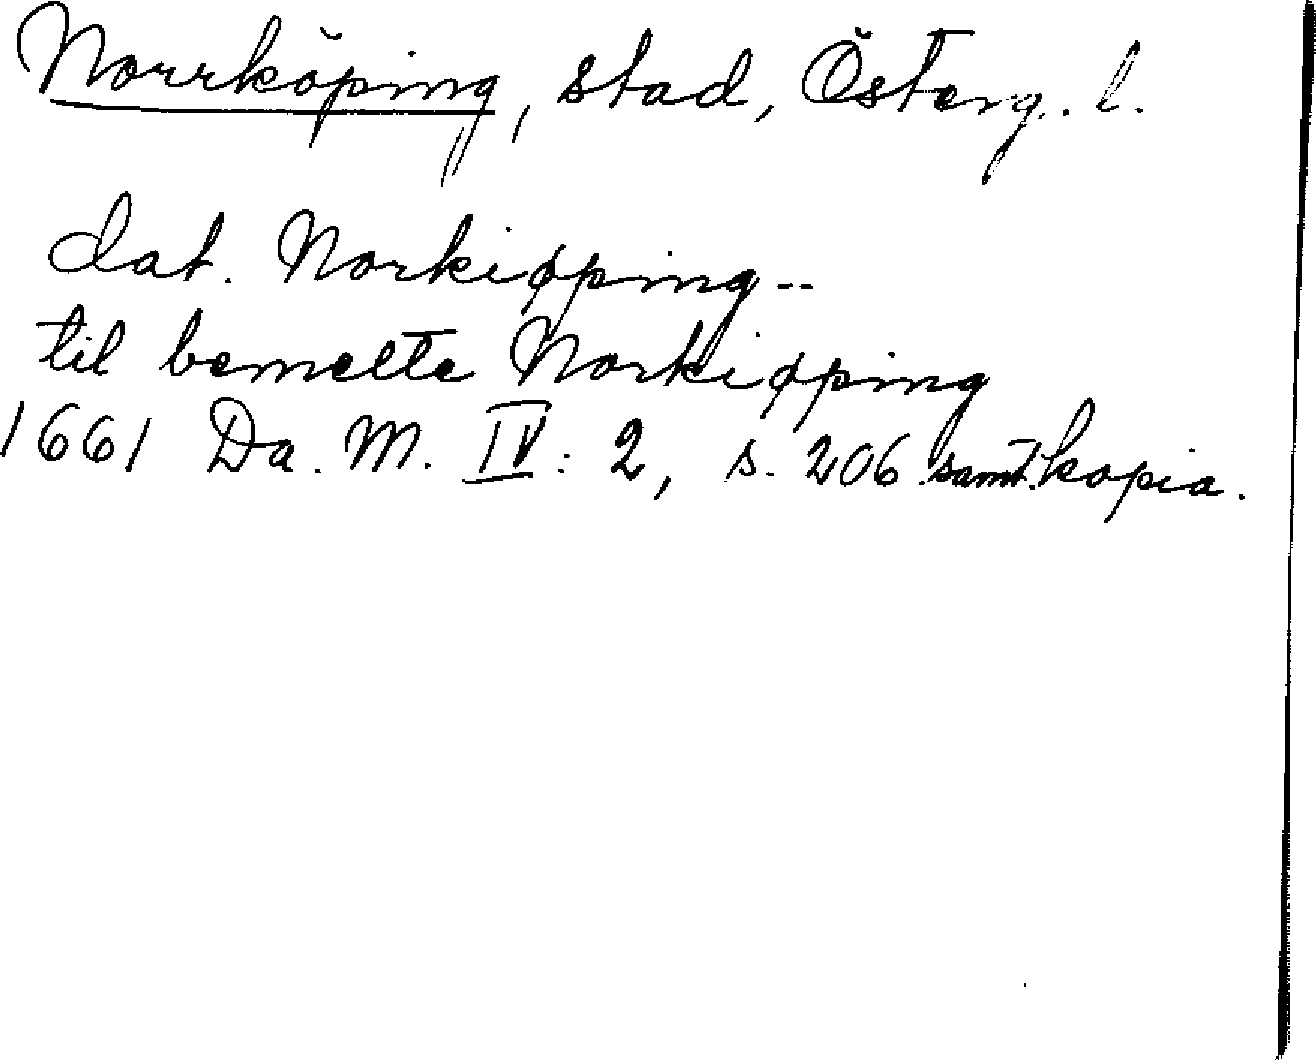 Norrköping, stad, Österg. l.
dat. Norkiøping --
til bemelte Norkiøping
1661 Da. M. IV: 2, s. 206 samt. kopia.